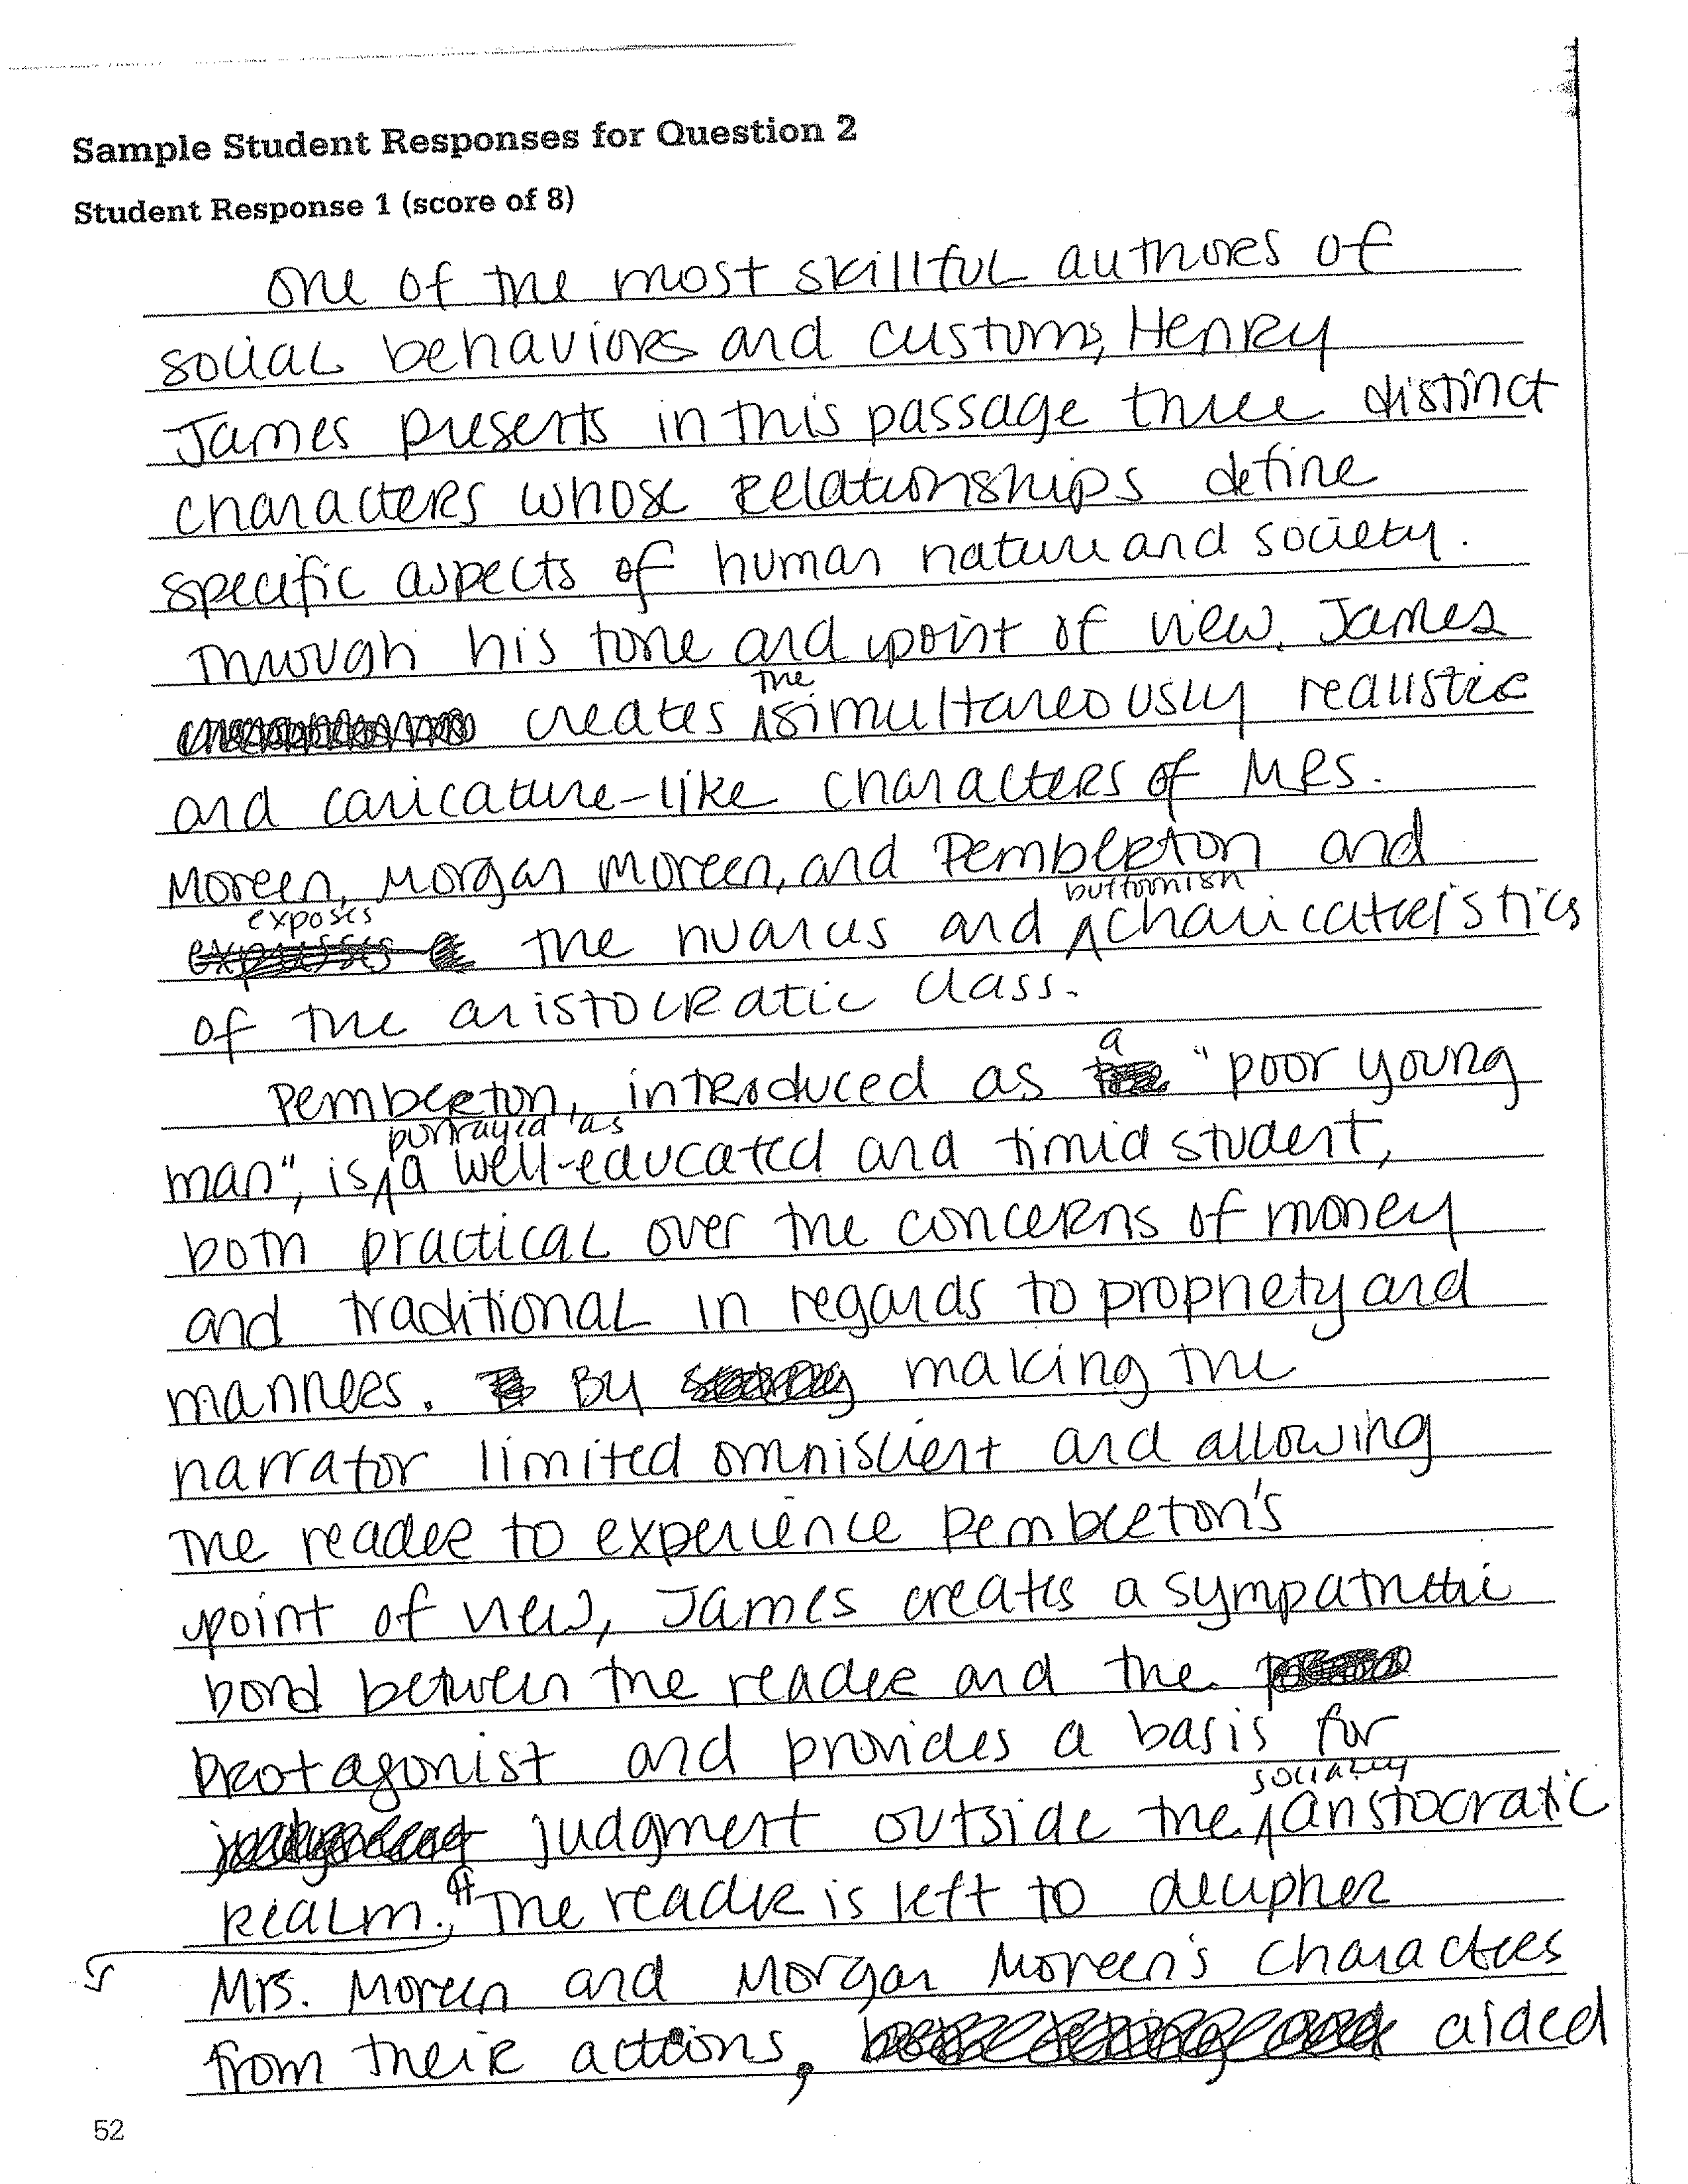 Sample Student Responses for Question 2
Student Response 1 (score of 8)
One of the most skillful authors of
social behaviors and customs, Henry
James presents in this passage three distinct
characters whose relationships define
specific aspects of human nature and society.
Through his tone and point of view, James
creates the simultaneously realistic
and caricature-like characters of Mrs.
Moreen, Morgan Moreen, and Pemberton and
exposes the nuances and buffoonish
of the aristocratic class.
Pemberton, introduced as a "poor young
man", is portrayed as a well-educated and timid student,
both practical over the concerns of money
and traditional in regards to propriety and
manners. By making the
narrator limited omniscient and allowing
the reader to experience Pemberton's
point of view, James creates a sympathetic
bond between the reader and the
protagonist and provides a basis for
judgment outside the socially aristocratic
realm. ¶ The reader is left to decipher
Mrs. Moreen and Morgan Moreen's characters
from their actions, aided
52